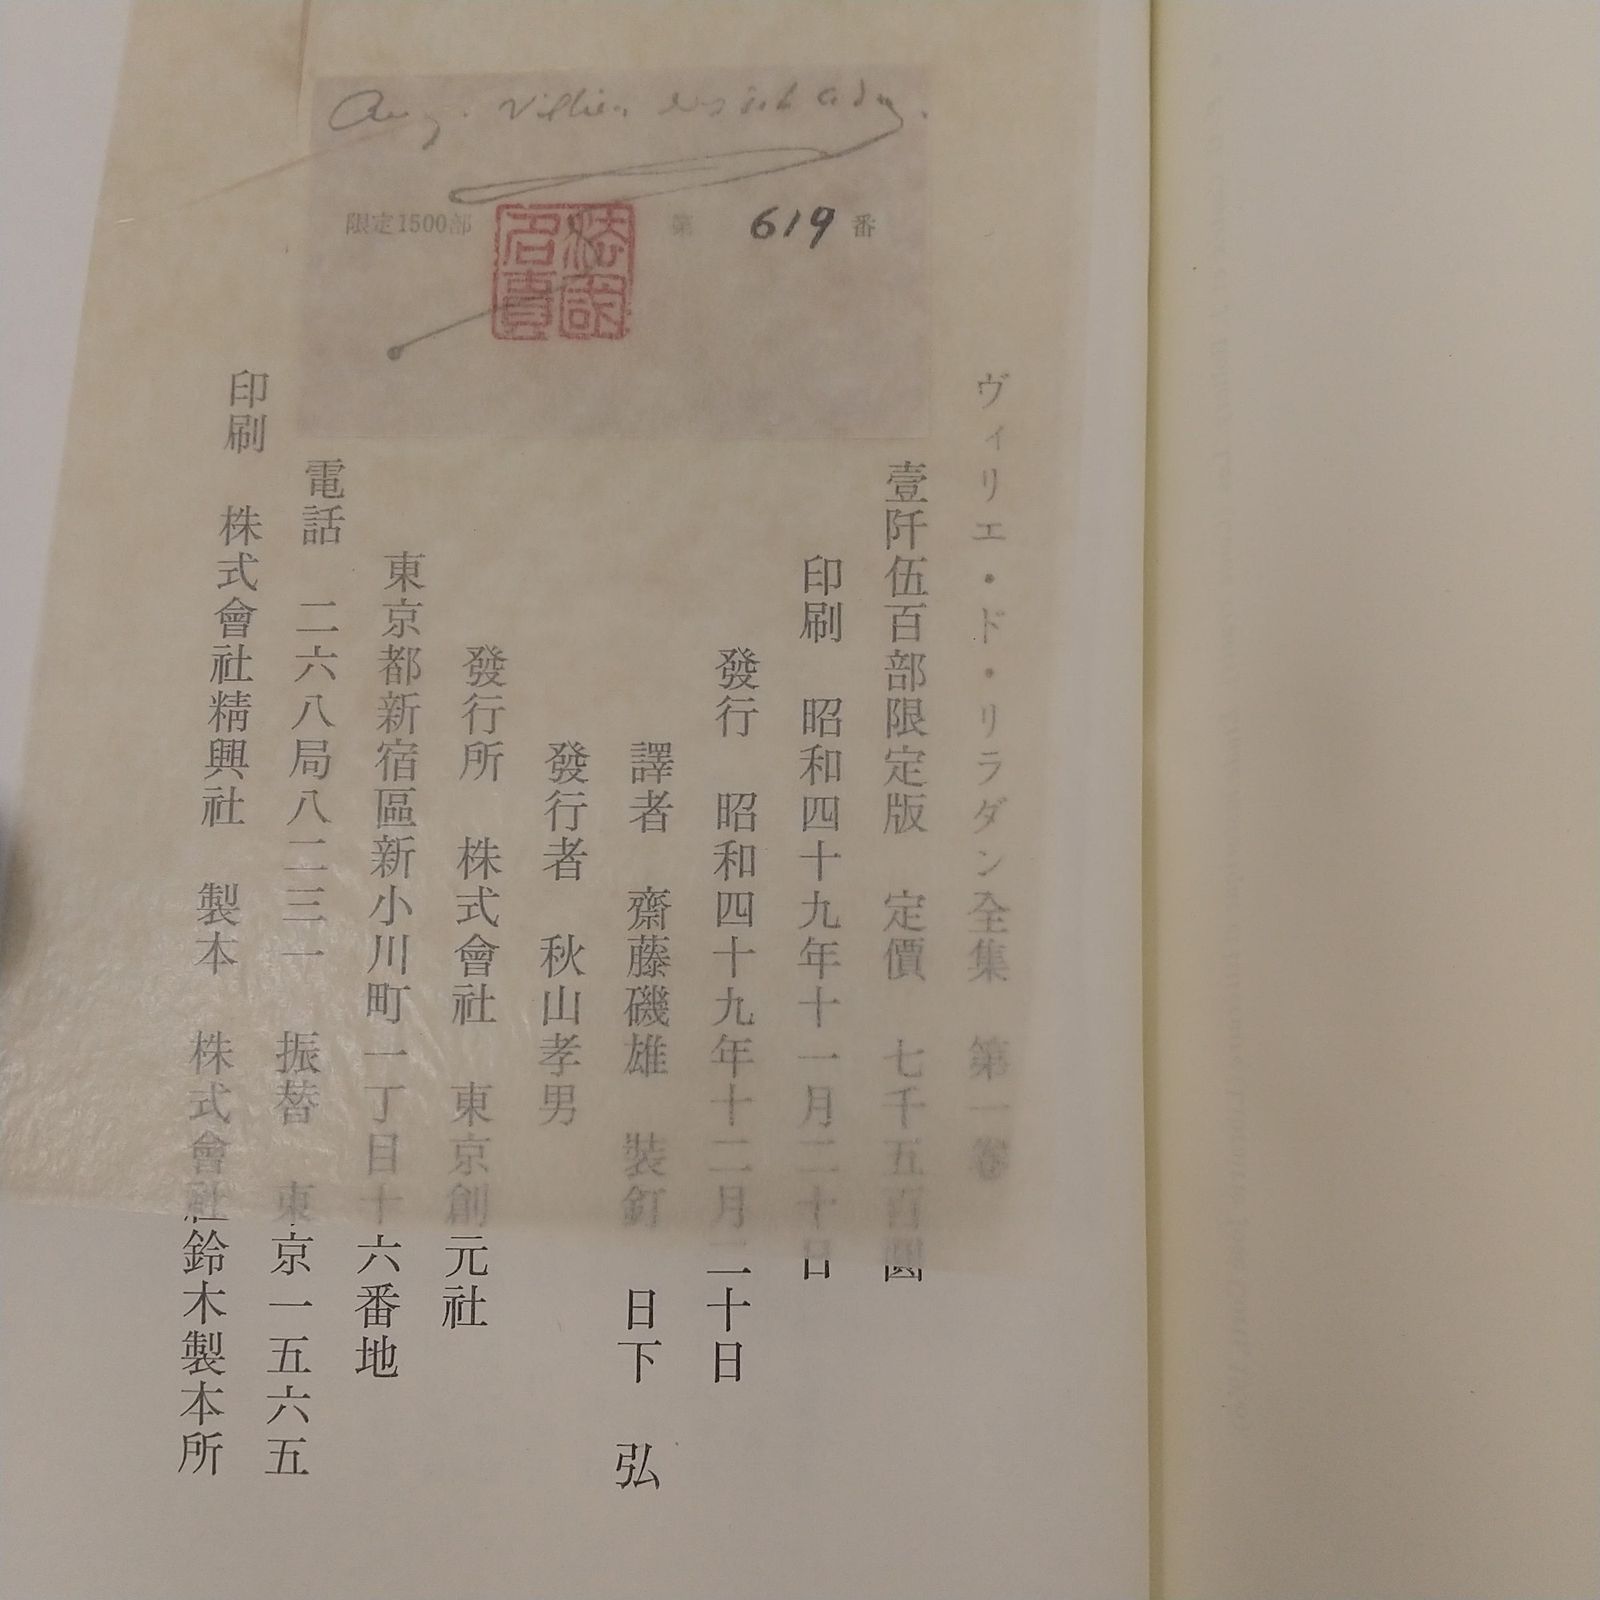 限定1500部 第 619 番
ヴィリエ・ド・リラダン全集 第一卷
壹阡伍百部限定版 定價 七千五百圓
印刷 昭和四十九年十一月二十日
發行 昭和四十九年十二月二十日
譯者 齋藤磯雄 裝釘 日下 弘
發行者 秋山孝男
發行所 株式會社 東京創元社
東京都新宿區新小川町一丁目十六番地
電話 二六八局八二三一 振替 東京一五六五
印刷 株式會社精興社 製本 株式會社鈴木製本所